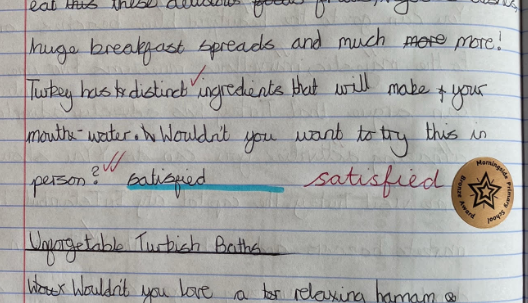 eat this these delicious
huge breakfast spreads and much more more!
Turkey has distinct ingredients that will make your
mouth-water. Wouldn't you want to try this in
person? satisfied satisfied
Morningside Primary School
Bronze award
Unforgetable Turkish Baths
Wouldn't you love a relaxing hamam